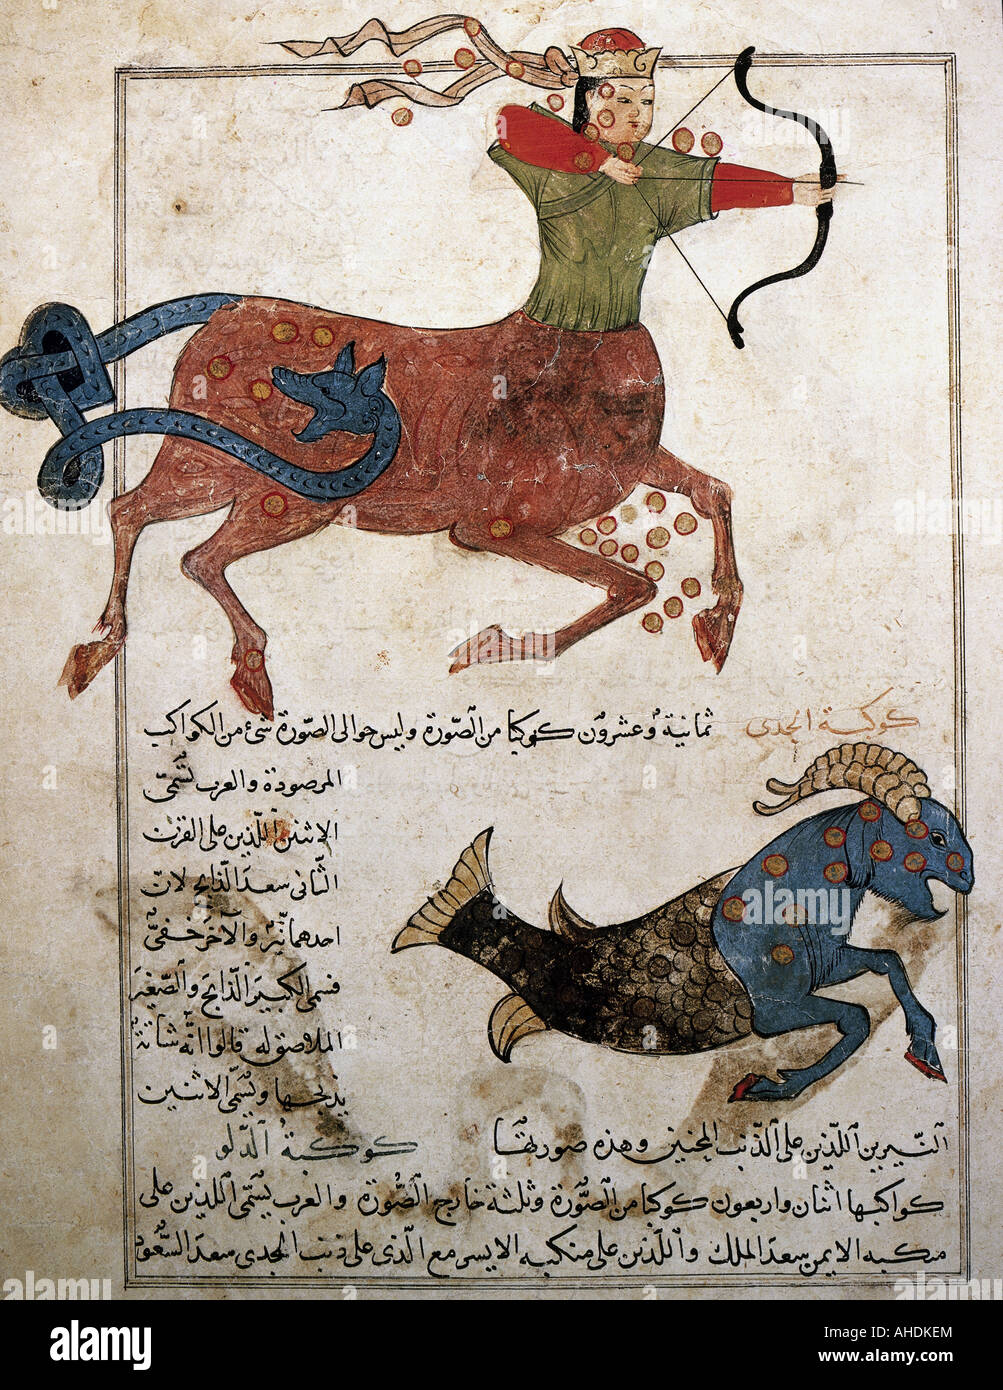 كوكبة الجدي ثمانية وعشرون كوكبا من الصّورة وليس حوالى الصّورة شئ من الكواكب
المرصودة والعرب تسمّى
الاثنين اللّذين على القرن
الثّانى سعد الذّابح لانّ
احدهما نيّر والآخر خفىّ
فسمى الكبير الذّابح والصّغير
الملاصق له قالوا انّه شاتهُ
يذبحها ويسمّى الاثنين
النّيرين اللّذين على الذّنب المحنين وهذه صورتها
كوكبة الدّلو
كواكبها اثنان واربعون كوكبا من الصّورة وثلثة خارج الصّورة والعرب يسمّى اللذين على
منكبه الايمن سعد الملك واللّذين على منكبه الايسر مع الّذى على ذنب الجدى سعد السّعود
alamy
a
alamy stock photo
AHDKEM
www.alamy.com